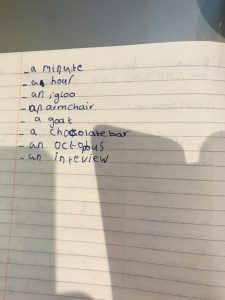 _ a minute
_ an hour
_ an igloo
_ an armchair
_ a goat
_ a chocolate bar
_ an octopus
_ an interview